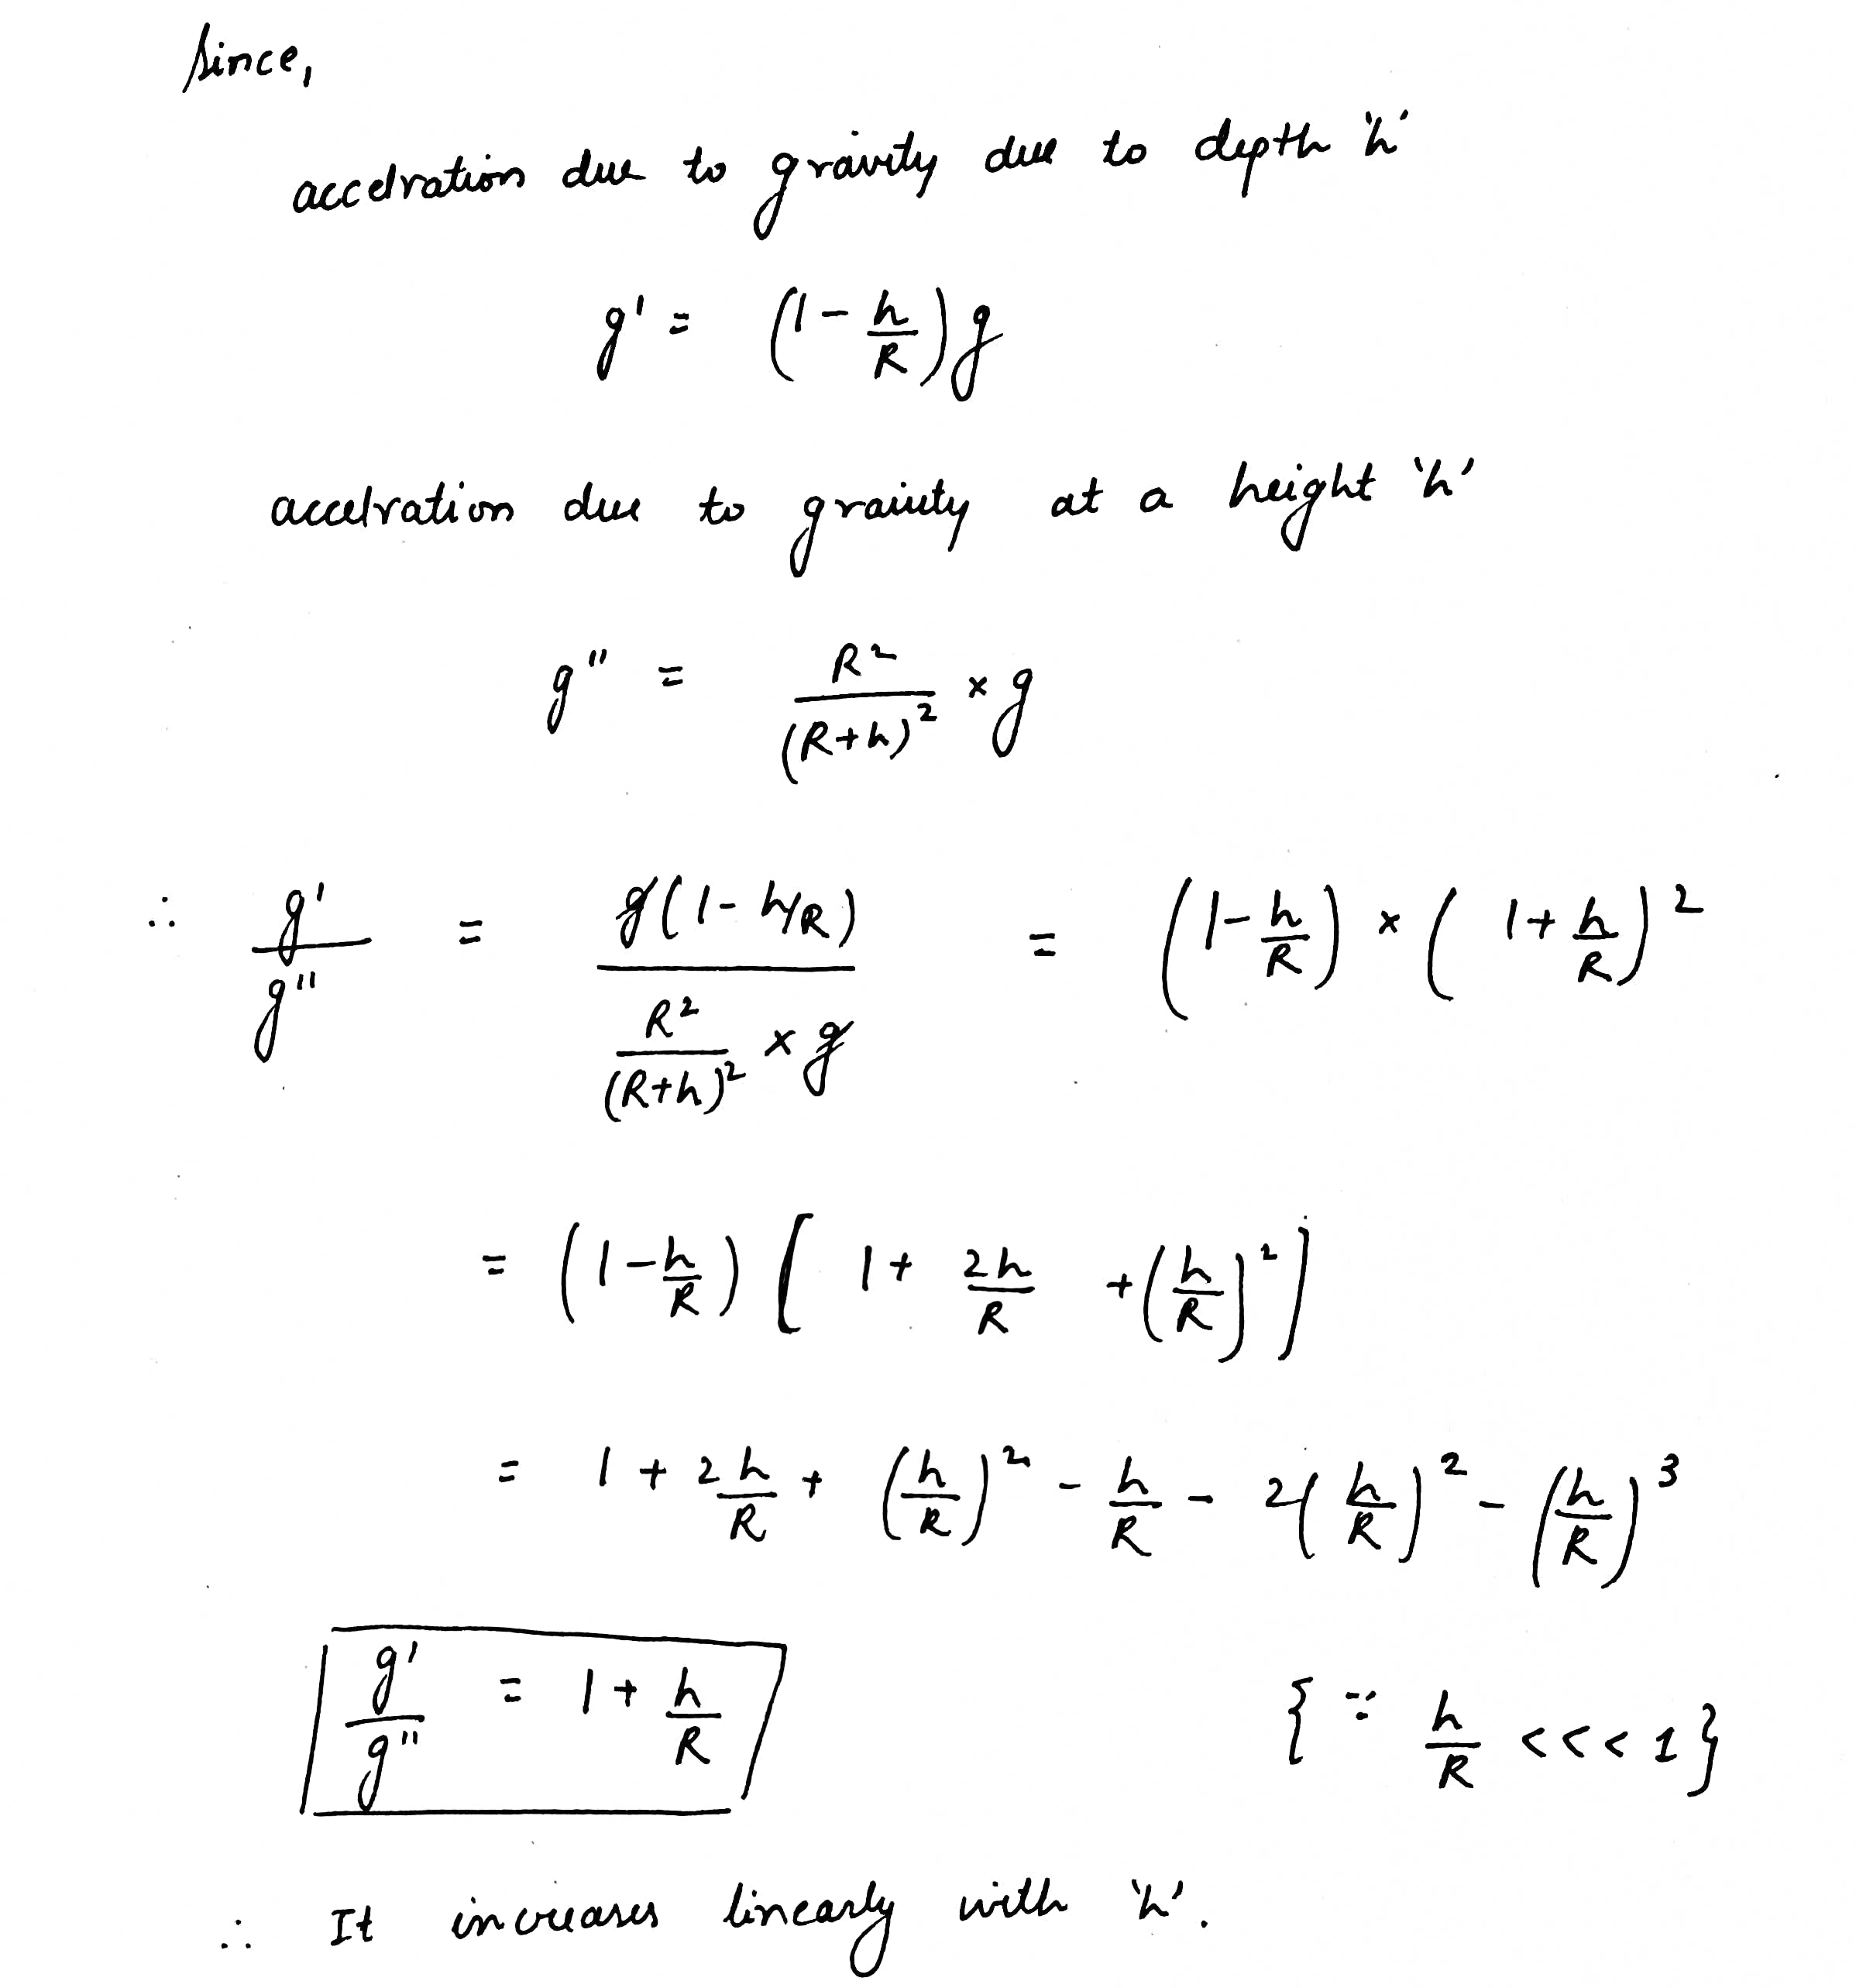 Since,
accelration due to gravity due to depth 'h'
g' = (1 - h/R) g
accelration due to gravity at a height 'h'
g'' = R²/(R+h)² × g
∴ g'/g'' = g(1 - h/R) / (R²/(R+h)² × g) = (1 - h/R) × (1 + h/R)²
= (1 - h/R) [1 + 2h/R + (h/R)²]
= 1 + 2h/R + (h/R)² - h/R - 2(h/R)² - (h/R)³
g'/g'' = 1 + h/R {∵ h/R <<< 1}
∴ It increases linearly with 'h'.